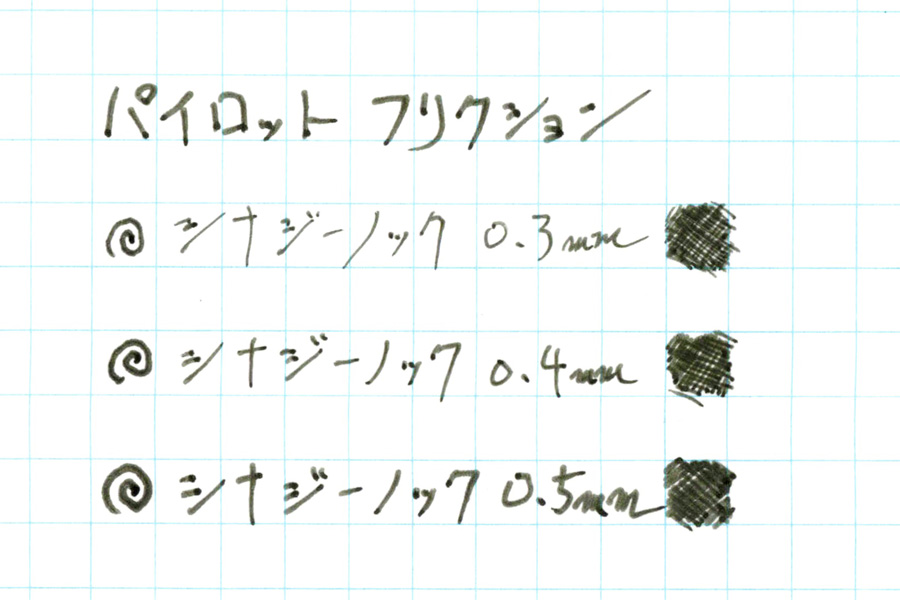 パイロット フリクション
シナジーノック 0.3mm
シナジーノック 0.4mm
シナジーノック 0.5mm